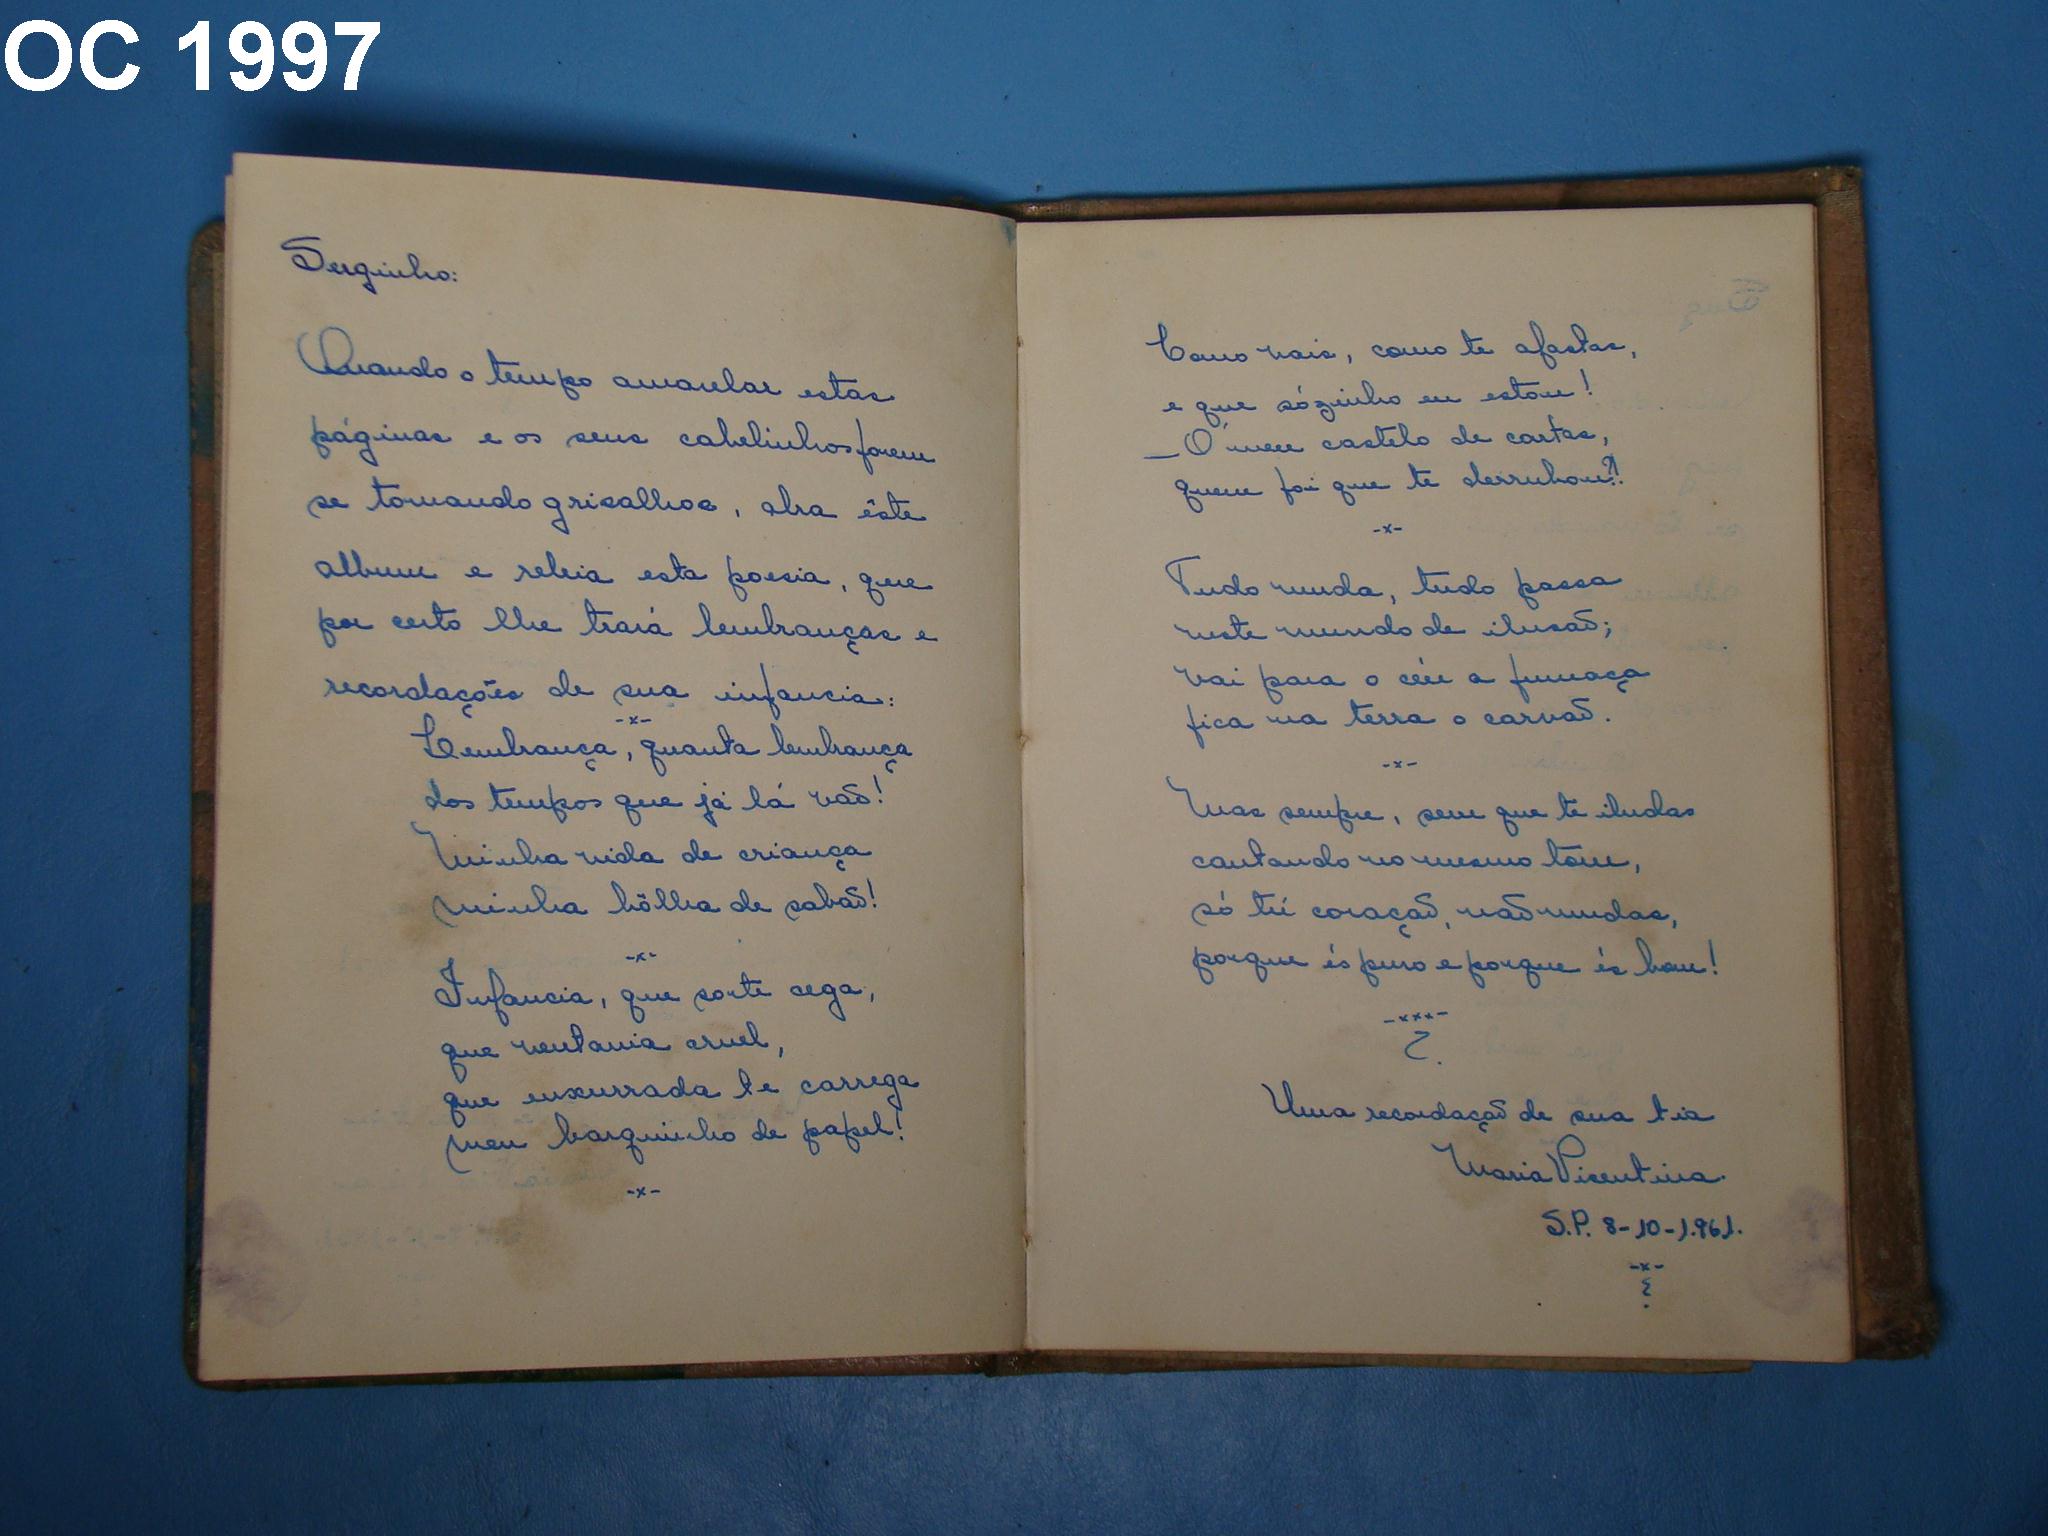 OC 1997
Serginho:
Quando o tempo amarelar estas
páginas e os seus cabelinhos forem
se tornando grisalhos, abra êste
album e releia esta poesia, que
por certo lhe trará lembranças e
recordações de sua infancia:
-x-
Lembrança, quanta lembrança
dos tempos que já lá vão!
Minha vida de criança
minha bôlha de sabão!
-x-
Infancia, que sorte cega,
que ventania cruel,
que enxurrada te carrega
meu barquinho de papel!
-x-
Como vais, como te afastas,
e que sózinho eu estou!
_ Ó meu castelo de cartas,
quem foi que te derrubou?!
-x-
Tudo muda, tudo passa
neste mundo de ilusão;
vai para o céu a fumaça
fica na terra o carvão.
-x-
Mas sempre, sem que te iludas
cantando no mesmo tom,
só tú coração, não mudas,
porque és puro e porque és bom!
-xxx-
Uma recordação de sua tia
Maria Vicentina.
S.P. 8-10-1.961.
-x-